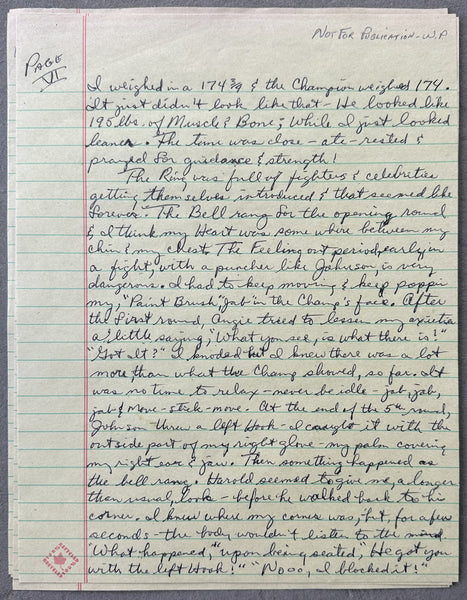 NOT FOR PUBLICATION - W.P
PAGE
VI
I weighed in a 174 3/4 & the Champion weighed 174.
It just didn't look like that - He looked like
195 lbs. of Muscle & Bone; While I just looked
leaner. The time was close - ate - rested &
prayed for guidance & strength!
The Ring was full of fighters & celebrities
getting themselves introduced & that seemed like
forever. The Bell rang for the opening round
& I think my Heart was some where between my
chin & my chest. The Feeling out period, early in
a fight, with a puncher like Johnson is very
dangerous. I had to keep moving & keep poppin
my, "Paint Brush" Jab in the Champ's face. After
the first round, Angie tried to lessen my
a "little saying," What you see, is what there is!"
"Got It?" I knoded but I knew there was a lot
more than what the Champ showed, so far. It
was no time to relax - never be idle - jab, jab,
jab & move - stick - move. At the end of the 5th round,
Johnson threw a left Hook - I caught it with the
outside part of my right glove - my palm covering
my right ear & jaw. Then something happened as
the bell rang. Harold seemed to give me, a longer
than usual, look - before he walked back to his
corner. I knew where my corner was, but, for a few
seconds - the body wouldn't listen to the mind.
"What happened," upon being seated, "He got you
with the left Hook!" "Nooo, I blocked it!"